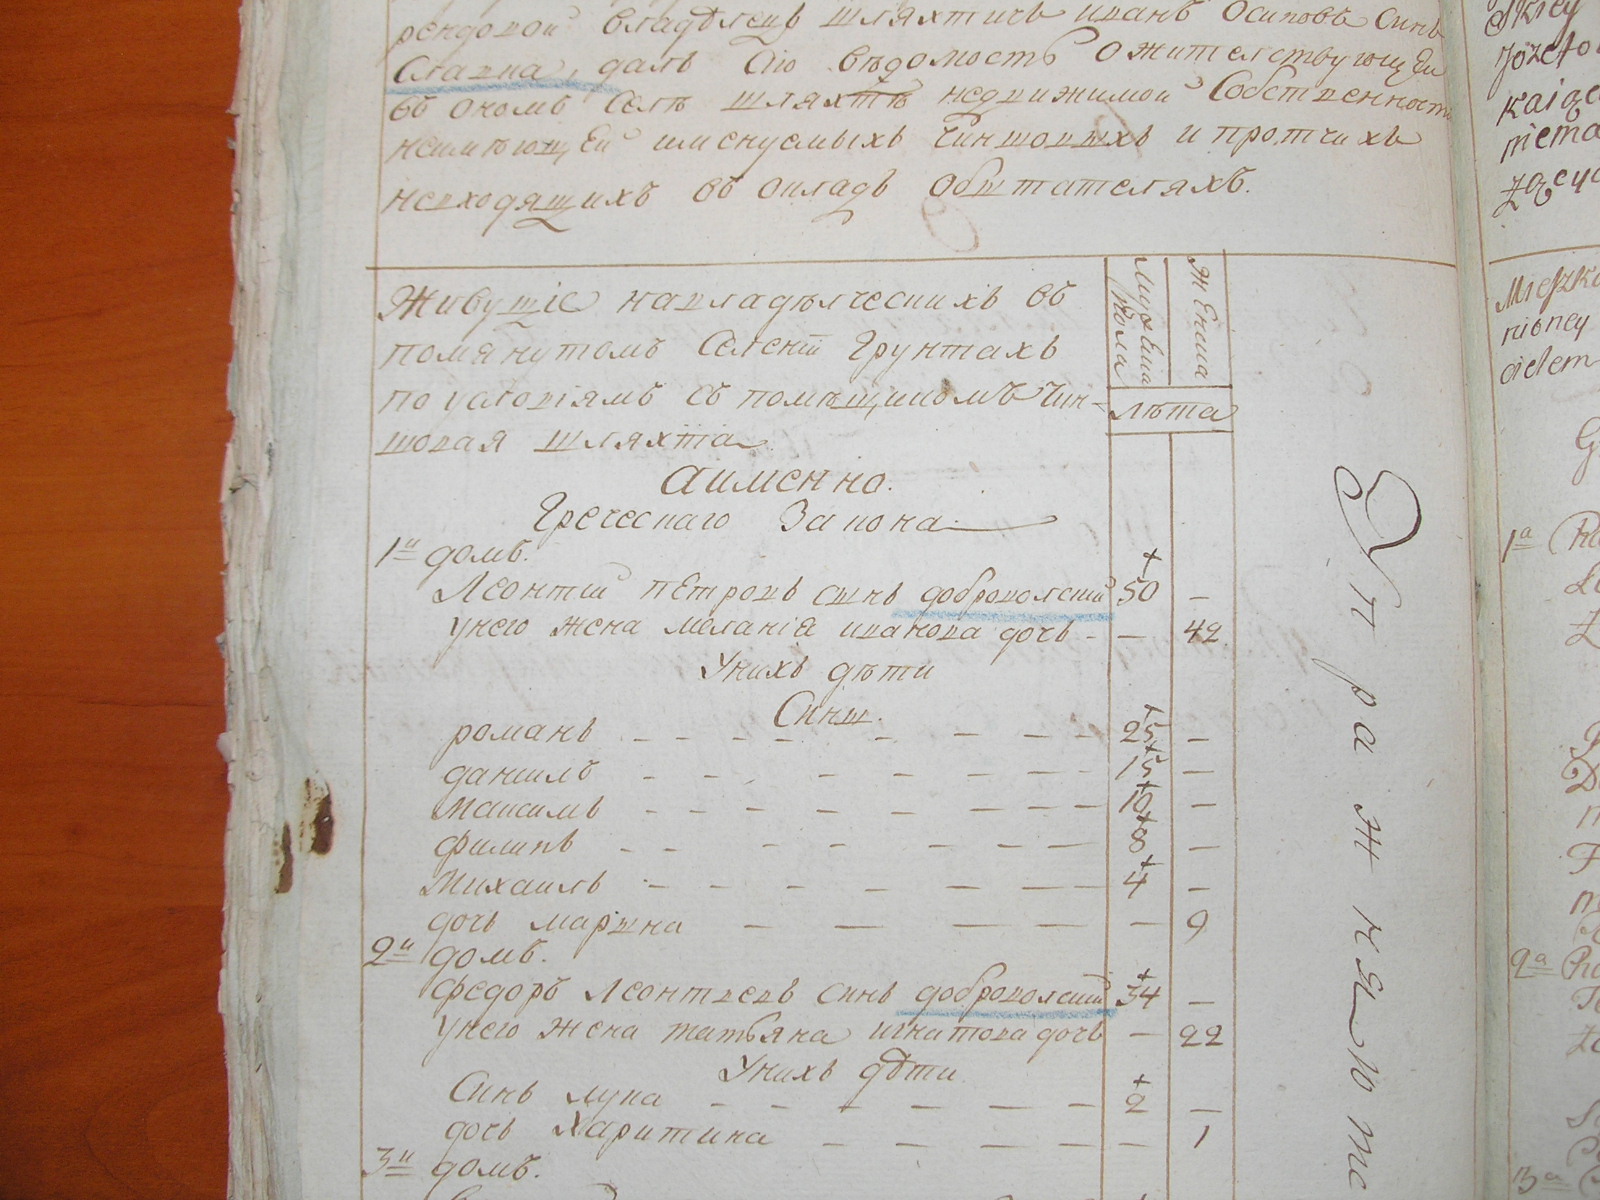 рендовой владѣлецъ шляхтичъ иванъ Осиповъ Синъ
Славка, далъ Сію вѣдомость О жителствующеи
въ ономъ Селѣ шляхтѣ недвижимой Собственности
неимѣющеи имянуемыхъ Чиншовыхъ и протчихъ
невходящихъ въ окладъ Обытателяхъ.
Живущіе навладѣлческихъ въ
помянутомъ Селеніи Грунтахъ
по условіямъ съ помѣщикомъ Чин-
шовая шляхта
Мужеска
пола
Женска
лѣта
Аименно.
Греческаго Закона
1й домъ.
Леонтій петровъ сынъ доброволскій 50 —
унего жена меланія иванова дочь - — 42
Унихъ дѣти
Сины.
романъ 25 —
данилъ 15 —
Максимъ 10 —
филипъ 8 —
Михаилъ 4 —
дочь марына — 9
2й домъ.
федоръ леонтиевъ синъ доброволский 34 —
унего жена татьяна игнатова дочь — 22
Унихъ дѣти
Синъ лука 2 —
дочь Харитина — 1
3й домъ.
Упражняюте
Józefo
niema
niżney
1а
2а
3а